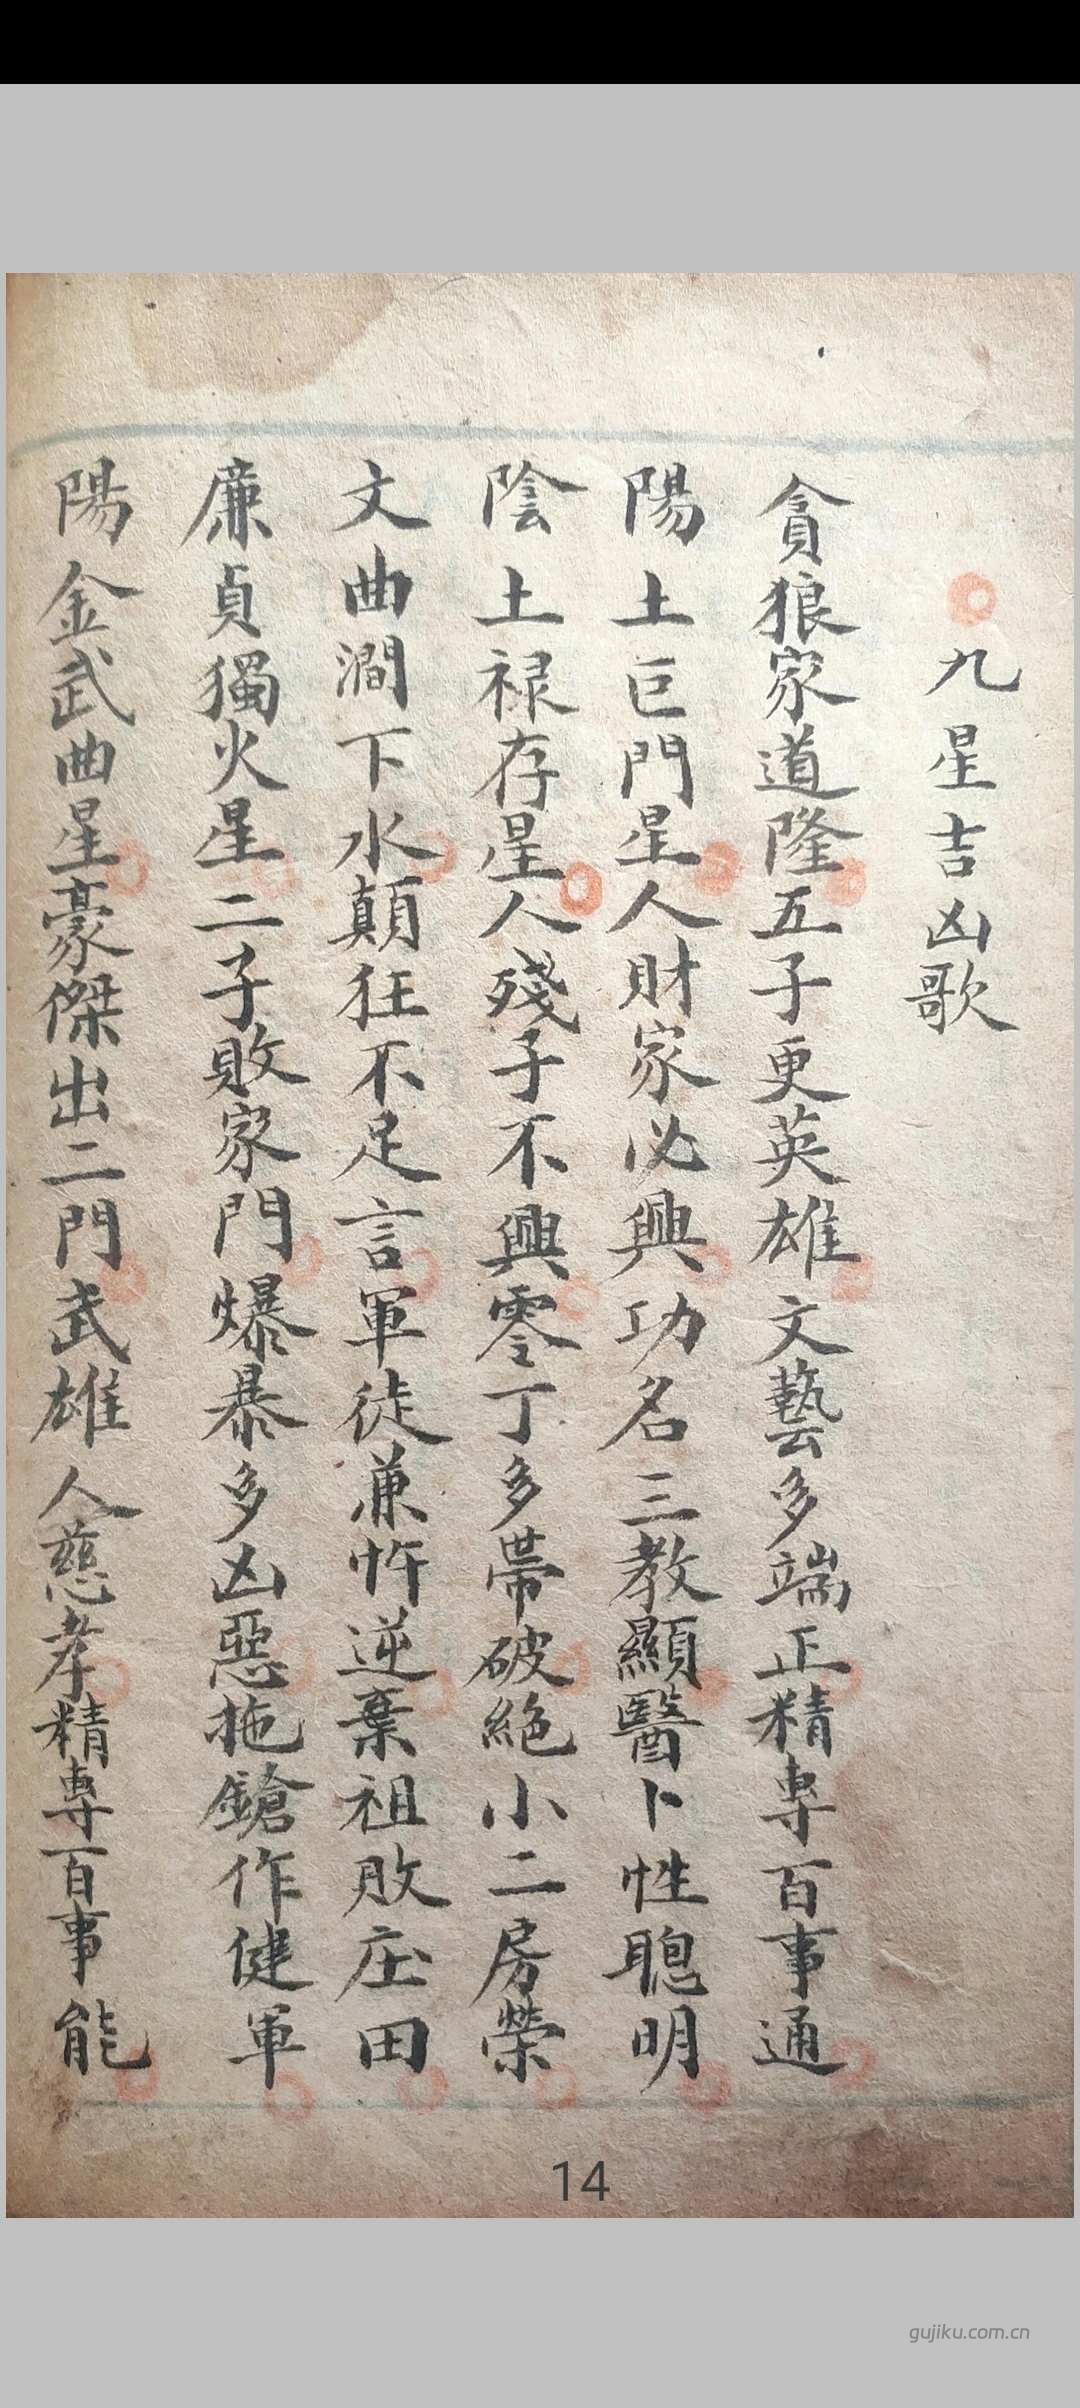 九星吉凶歌
貪狼家道隆五子更英雄文藝多端正精專百事通
陽土巨門星人財家必興功名三教顯醫卜性聰明
陰土禄存星人殘子不興零丁多帶破絕小二房榮
文曲澗下水顛狂不足言軍徒兼忤逆棄祖敗庄田
廉貞獨火星二子敗家門爆暴多凶惡拖鎗作健軍
陽金武曲星豪傑出二門武雄人慈孝精專百事能
14
gujiku.com.cn